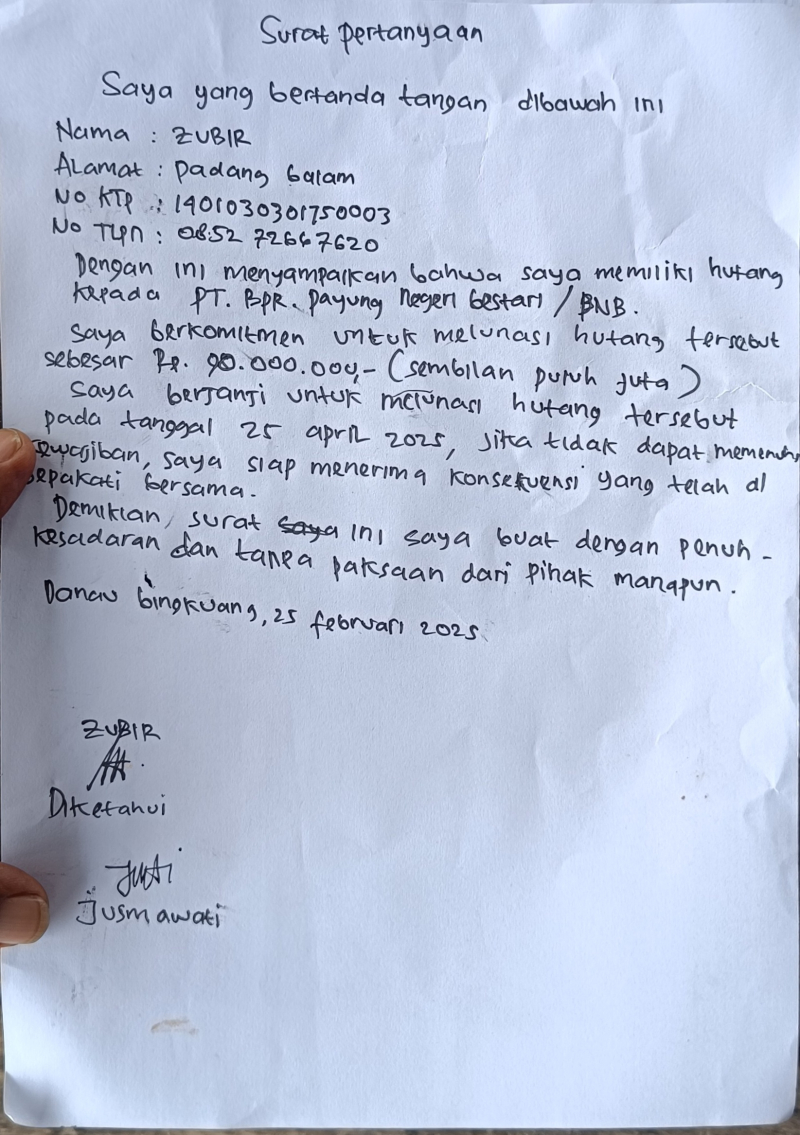 Surat pertanyaan
Saya yang bertanda tangan dibawah ini
Nama : ZUBIR
ALamat : padang balam
NO KTP : 1401030301750003
No TLPn : 0852 72667620
Dengan ini menyampaikan bahwa saya memiliki hutang
kepada PT. BPR. payung negeri bestari / BNB.
saya berkomitmen untuk melunasi hutang tersebut
sebesar Rp. 90.000.000,- (sembilan puluh juta)
saya berjanji untuk melunasi hutang tersebut
pada tanggal 25 april 2025, jika tidak dapat memenuhi
kewajiban, saya siap menerima konsekuensi yang telah di
sepakati bersama.
Demikian, surat saya ini saya buat dengan penuh -
kesadaran dan tanpa paksaan dari pihak manapun.
Danau bingkuang, 25 februari 2025
ZUBIR
Diketahui
Jusmawati